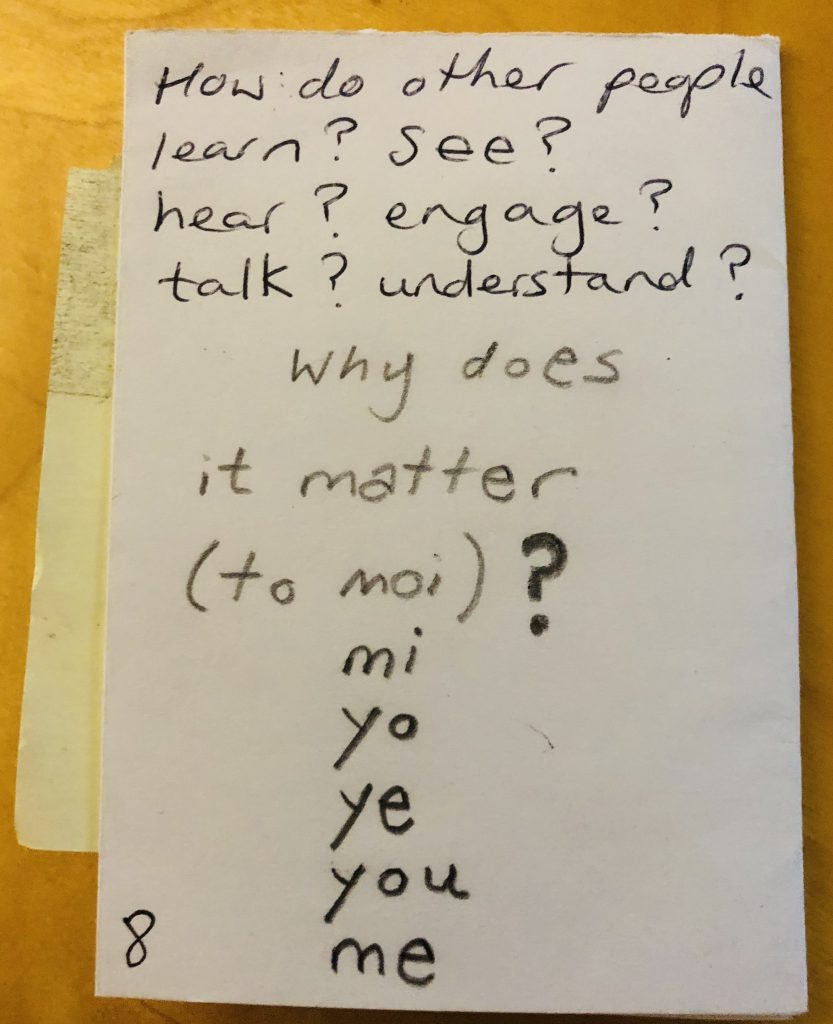 How do other people
learn? see?
hear? engage?
talk? understand?
why does
it matter
(to moi)?
mi
yo
ye
you
8 me